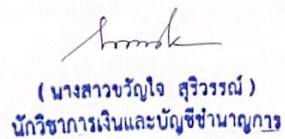 ( นางสาวขวัญใจ สุริวรรณ์ )
นักวิชาการเงินและบัญชีชำนาญการ